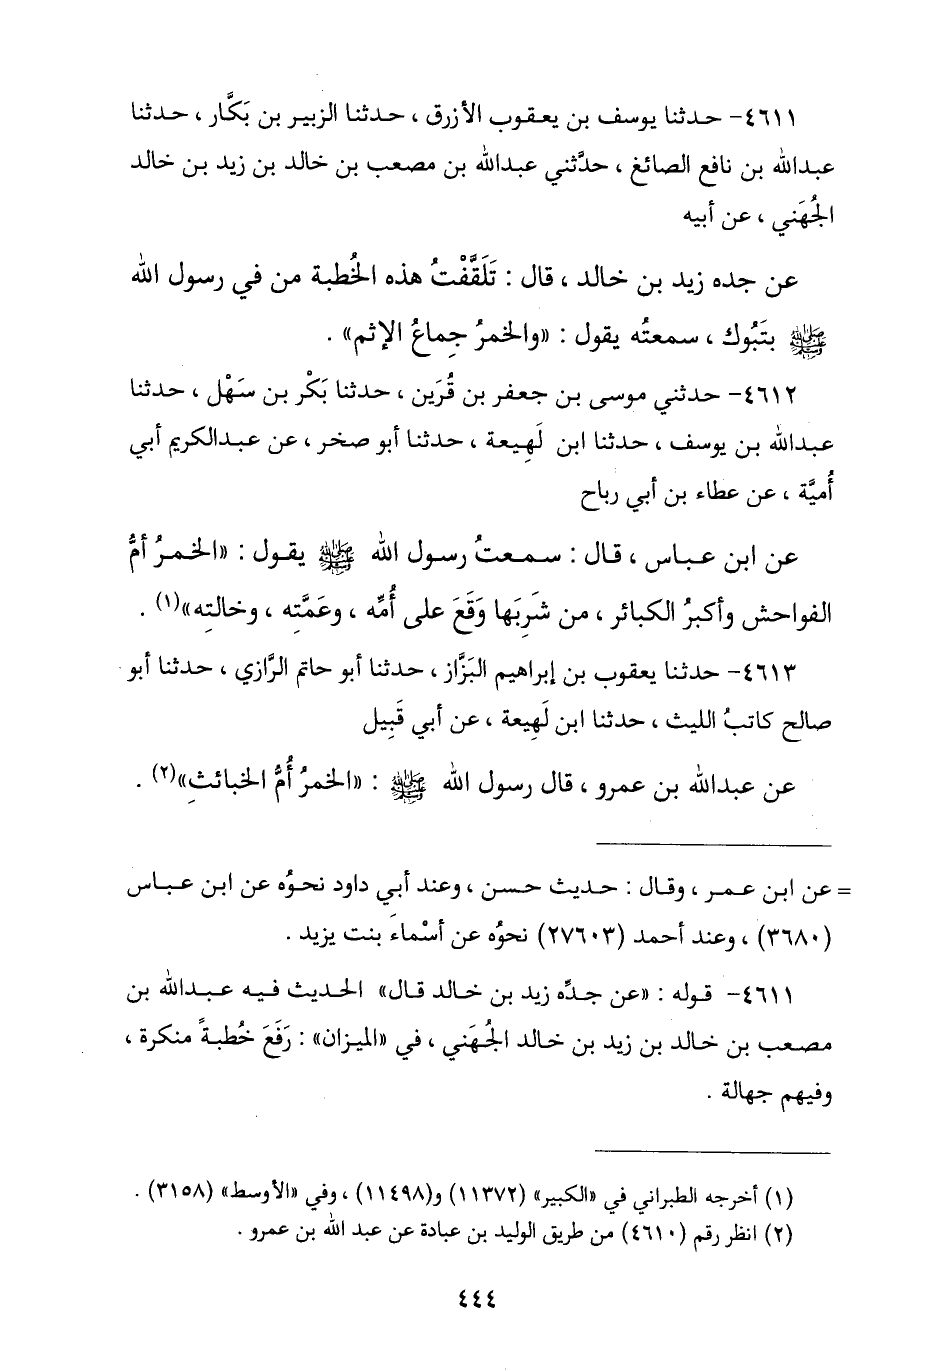 ٤٦١١- حدثنا يوسف بن يعقوب الأزرق ، حدثنا الزبير بن بَكَّار ، حدثنا
عبدالله بن نافع الصائغ ، حدَّثني عبدالله بن مصعب بن خالد بن زيد بن خالد
الجُهَني ، عن أبيه
عن جده زيد بن خالد ، قال : تَلَقَّفْتُ هذه الخُطبة من في رسول الله
ﷺ بتَبُوك ، سمعتُه يقول : «والخمرُ جِماعُ الإثم» .
٤٦١٢- حدثني موسى بن جعفر بن قُرَين ، حدثنا بَكْر بن سَهْل ، حدثنا
عبدالله بن يوسف ، حدثنا ابن لَهِيعة ، حدثنا أبو صخر ، عن عبدالكريم أبي
أُميَّة ، عن عطاء بن أبي رباح
عن ابن عباس ، قال : سمعتُ رسول الله ﷺ يقول : «الخمرُ أمُّ
الفواحش وأكبرُ الكبائر ، من شَرِبَها وَقَعَ على أُمِّه ، وعَمَّتِه ، وخالتِه»(١) .
٤٦١٣- حدثنا يعقوب بن إبراهيم البَزَّاز ، حدثنا أبو حاتم الرَّازي ، حدثنا أبو
صالح كاتبُ الليث ، حدثنا ابن لَهِيعة ، عن أبي قَبِيل
عن عبدالله بن عمرو ، قال رسول الله ﷺ : «الخمرُ أُمُّ الخبائثِ»(٢) .
= عن ابن عمر ، وقال : حديث حسن ، وعند أبي داود نحوُه عن ابن عباس
(٣٦٨٠) ، وعند أحمد (٢٧٦٠٣) نحوُه عن أسْماءَ بنت يزيد .
٤٦١١- قوله : «عن جدِّه زيد بن خالد قال» الحديث فيه عبدالله بن
مصعب بن خالد بن زيد بن خالد الجُهَني ، في «الميزان» : رَفَعَ خُطبةً منكرة ،
وفيهم جهالة .
(١) أخرجه الطبراني في «الكبير» (١١٣٧٢) و(١١٤٩٨) ، وفي «الأوسط» (٣١٥٨) .
(٢) انظر رقم (٤٦١٠) من طريق الوليد بن عبادة عن عبد الله بن عمرو .
٤٤٤